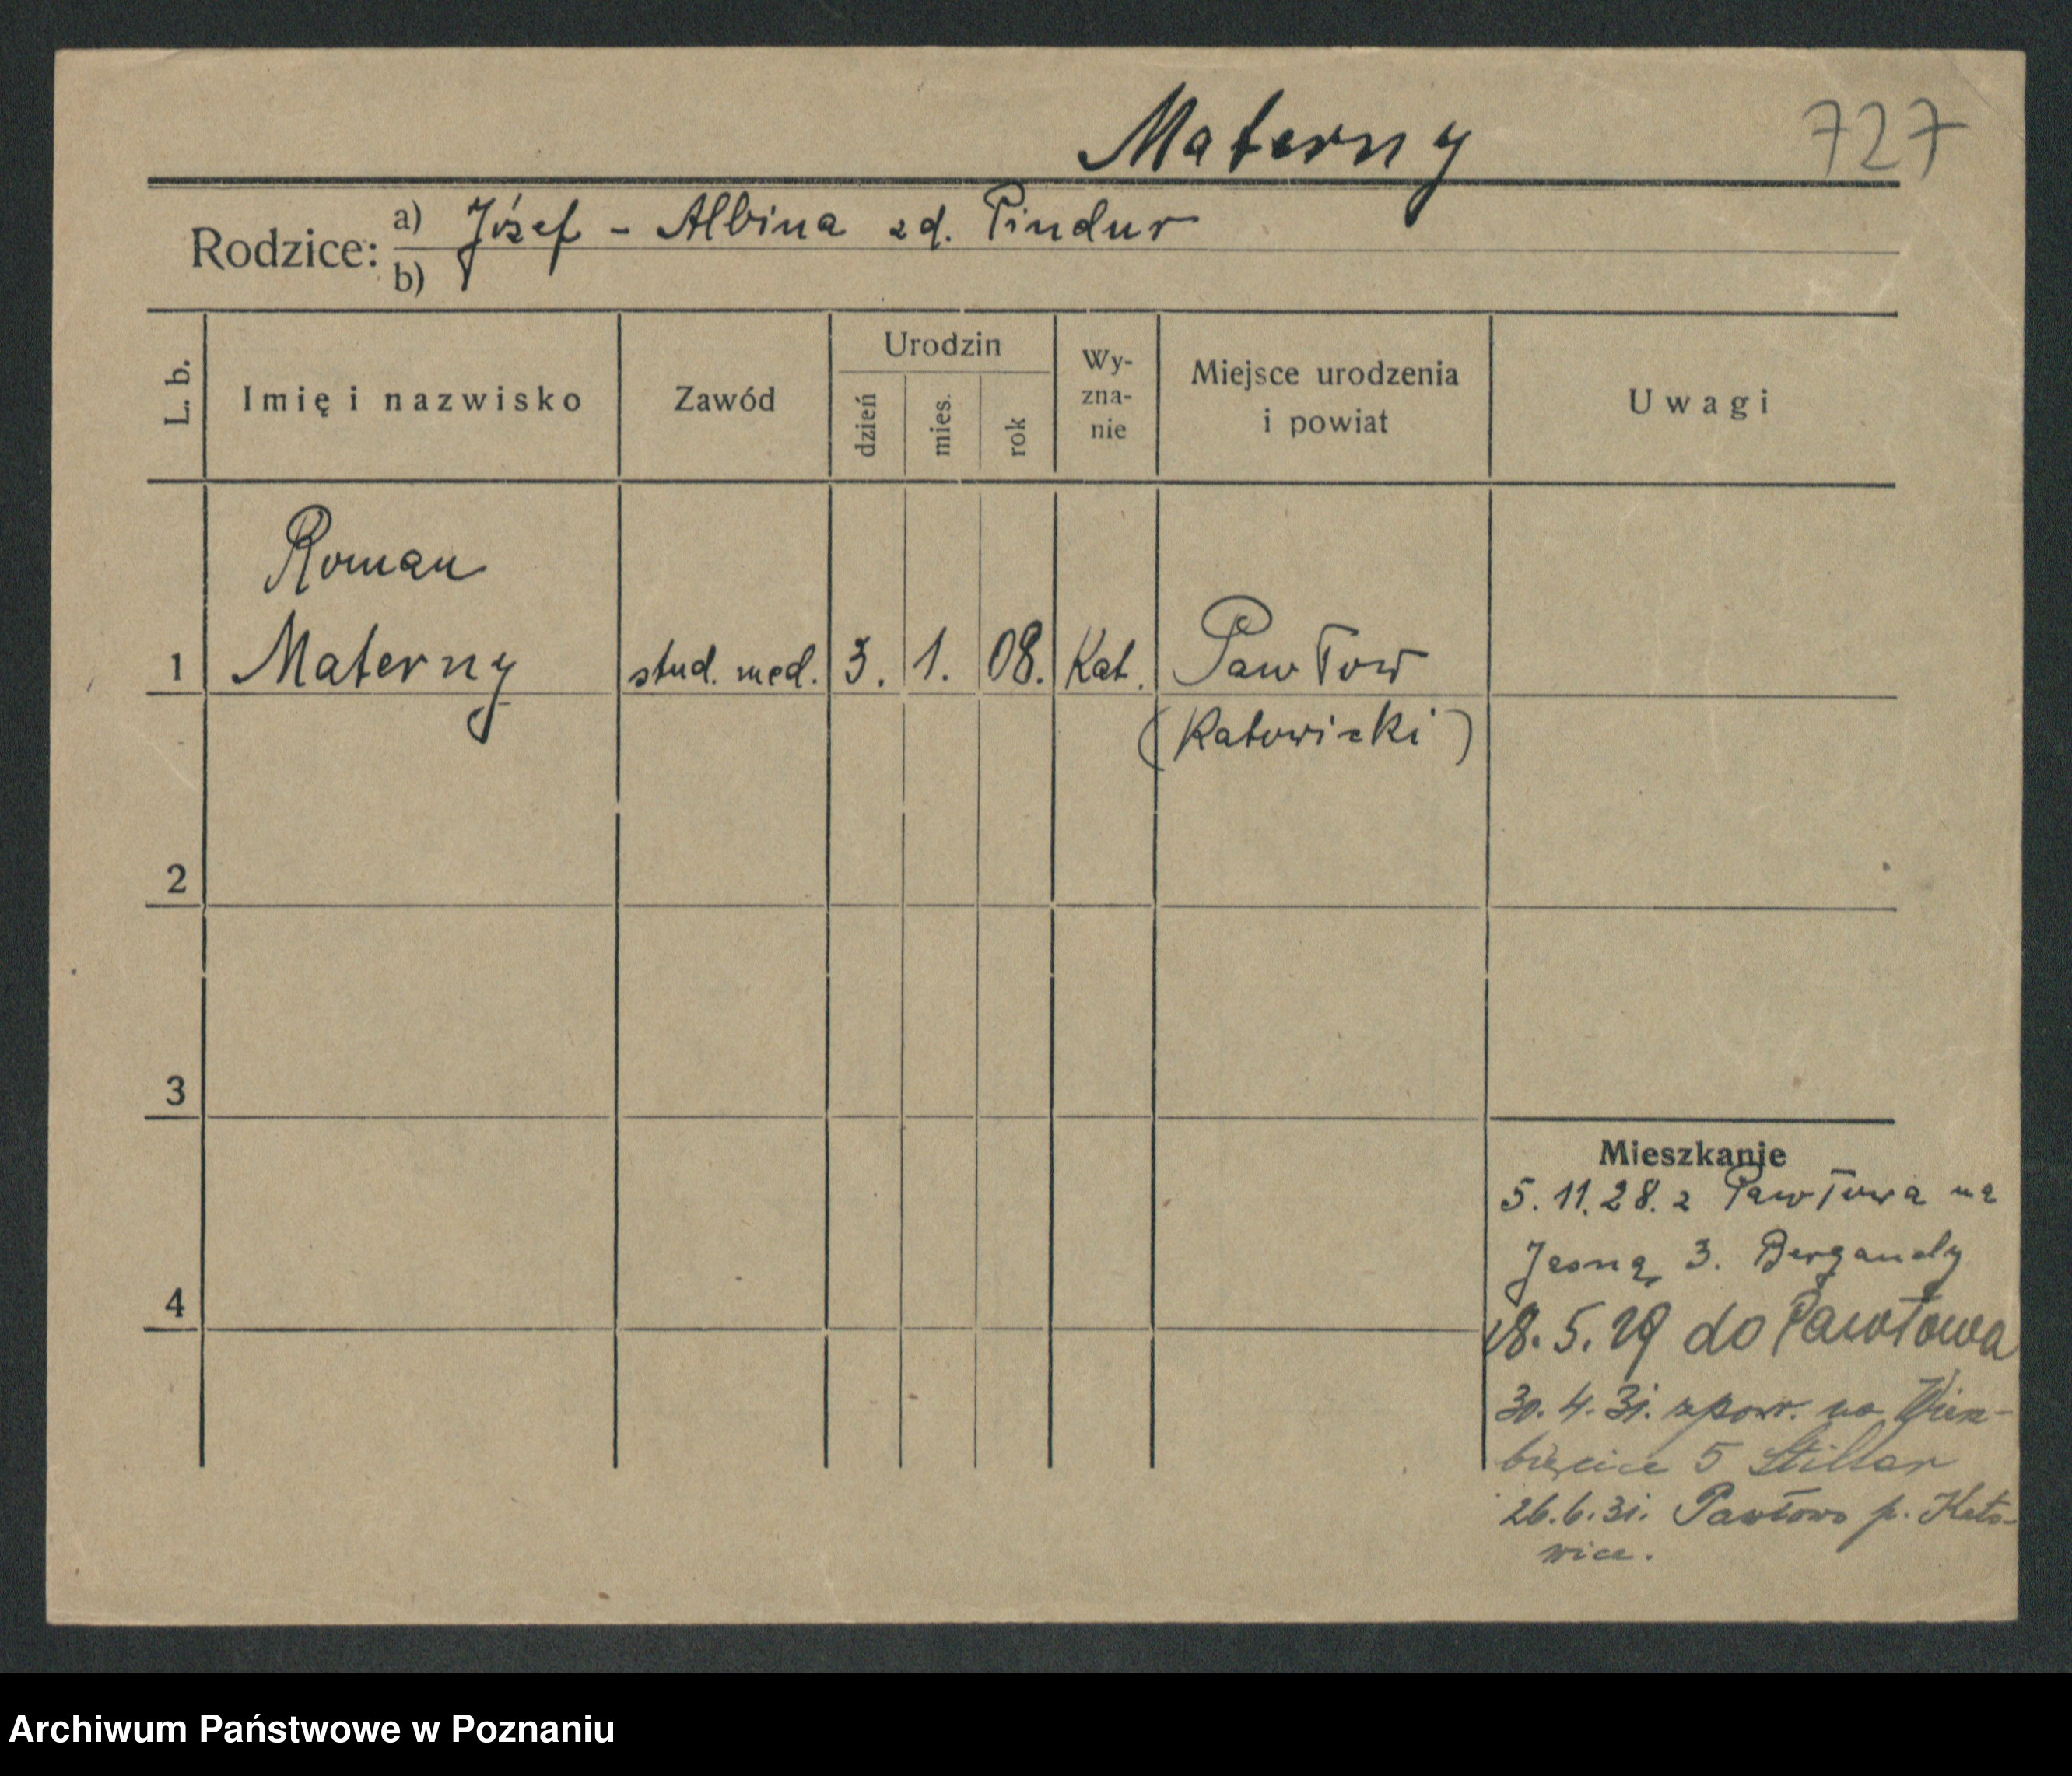 Materny 727
Rodzice: a) Józef - Albina zd. Pindur
b)
L. b. Imię i nazwisko Zawód Urodzin dzień mies. rok Wy-zna-nie Miejsce urodzenia i powiat Uwagi
Roman
1 Materny stud. med. 3. 1. 08. Kat. Pawłow
(Katowicki)
2
3
Mieszkanie
5. 11. 28. z Pawłowa na
Jasną 3. Bergandy
4
18. 5. 29 do Pawłowa
30. 4. 31. zpow. na Wierz-
bięcice 5 Stiller
26. 6. 31. Pawłowo p. Kato-
wice.
Archiwum Państwowe w Poznaniu